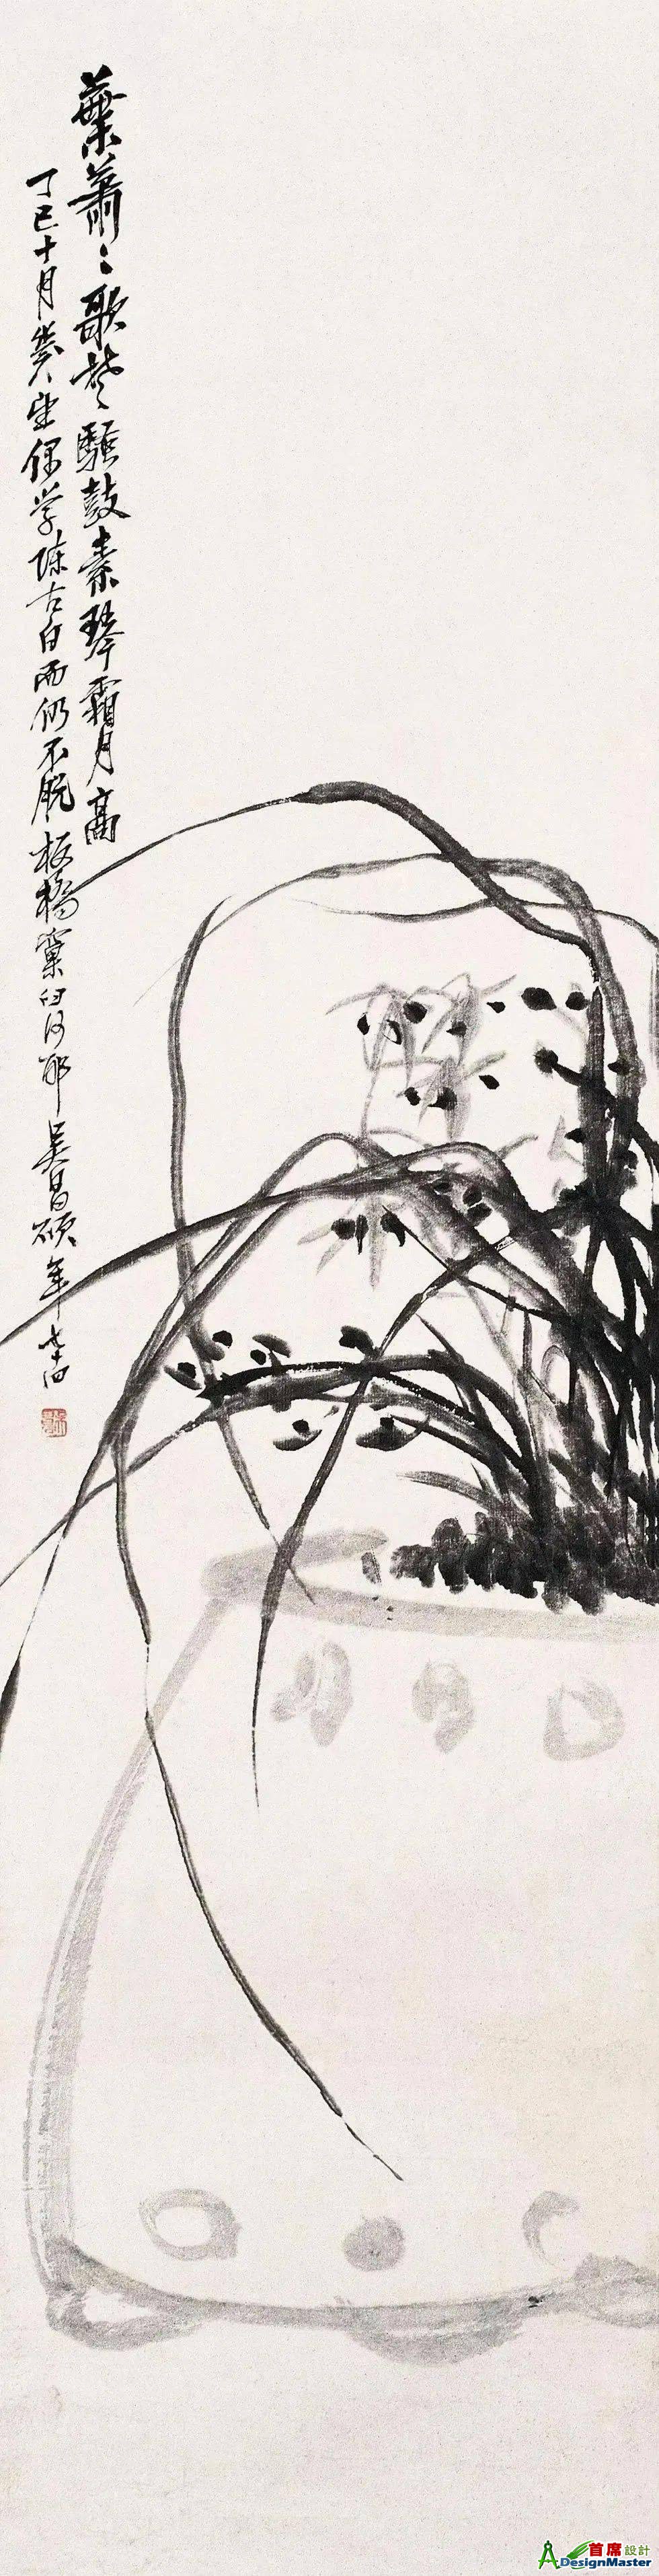 葉蕭〻歌楚騷鼓素琴霜月高
丁巳十月幾望偶學陳古白而仍不脫板橋窠臼何耶吳昌碩年七十四
首席設計
ADesignMaster